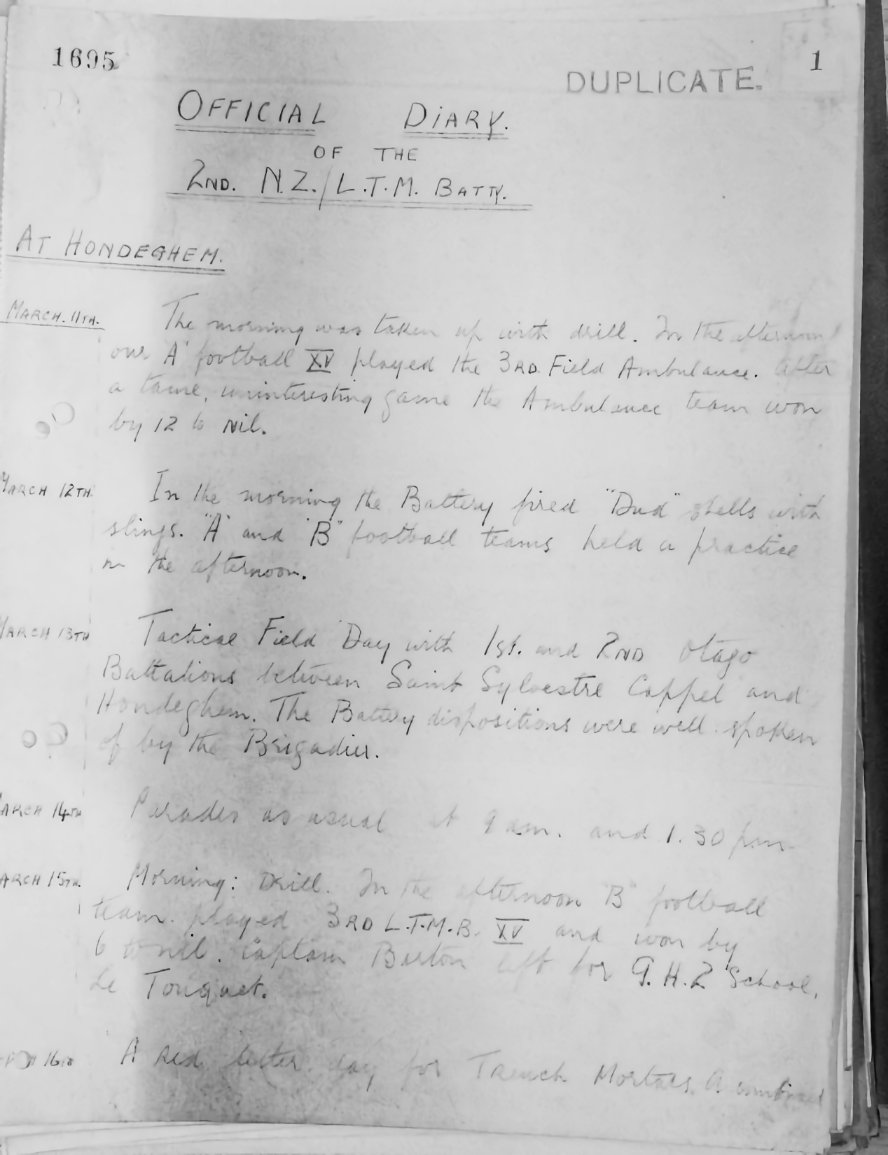 1695
DUPLICATE.
1
OFFICIAL DIARY.
OF THE
2ND. N.Z./L.T.M. BATTY.
AT HONDEGHEM.
MARCH. 11TH. The morning was taken up with drill. In the afternoon
our "A" football XV played the 3RD Field Ambulance. After
a tame, uninteresting game the Ambulance team won
by 12 to Nil.
MARCH 12TH. In the morning the Battery fired "Dud" shells with
slings. "A" and "B" football teams held a practice
in the afternoon.
MARCH 13TH Tactical Field Day with 1st. and 2ND Otago
Battalions between Saint Sylvestre Cappel and
Hondeghem. The Battery dispositions were well spoken
of by the Brigadier.
MARCH 14TH Parades as usual at 9 am. and 1.30 pm.
MARCH 15TH. Morning: Drill. In the afternoon "B" football
team played 3RD L.T.M.B. XV and won by
6 to nil. Captain left for G.H.Q School,
Le Touquet.
16TH A red letter day for Trench Mortars. A combined